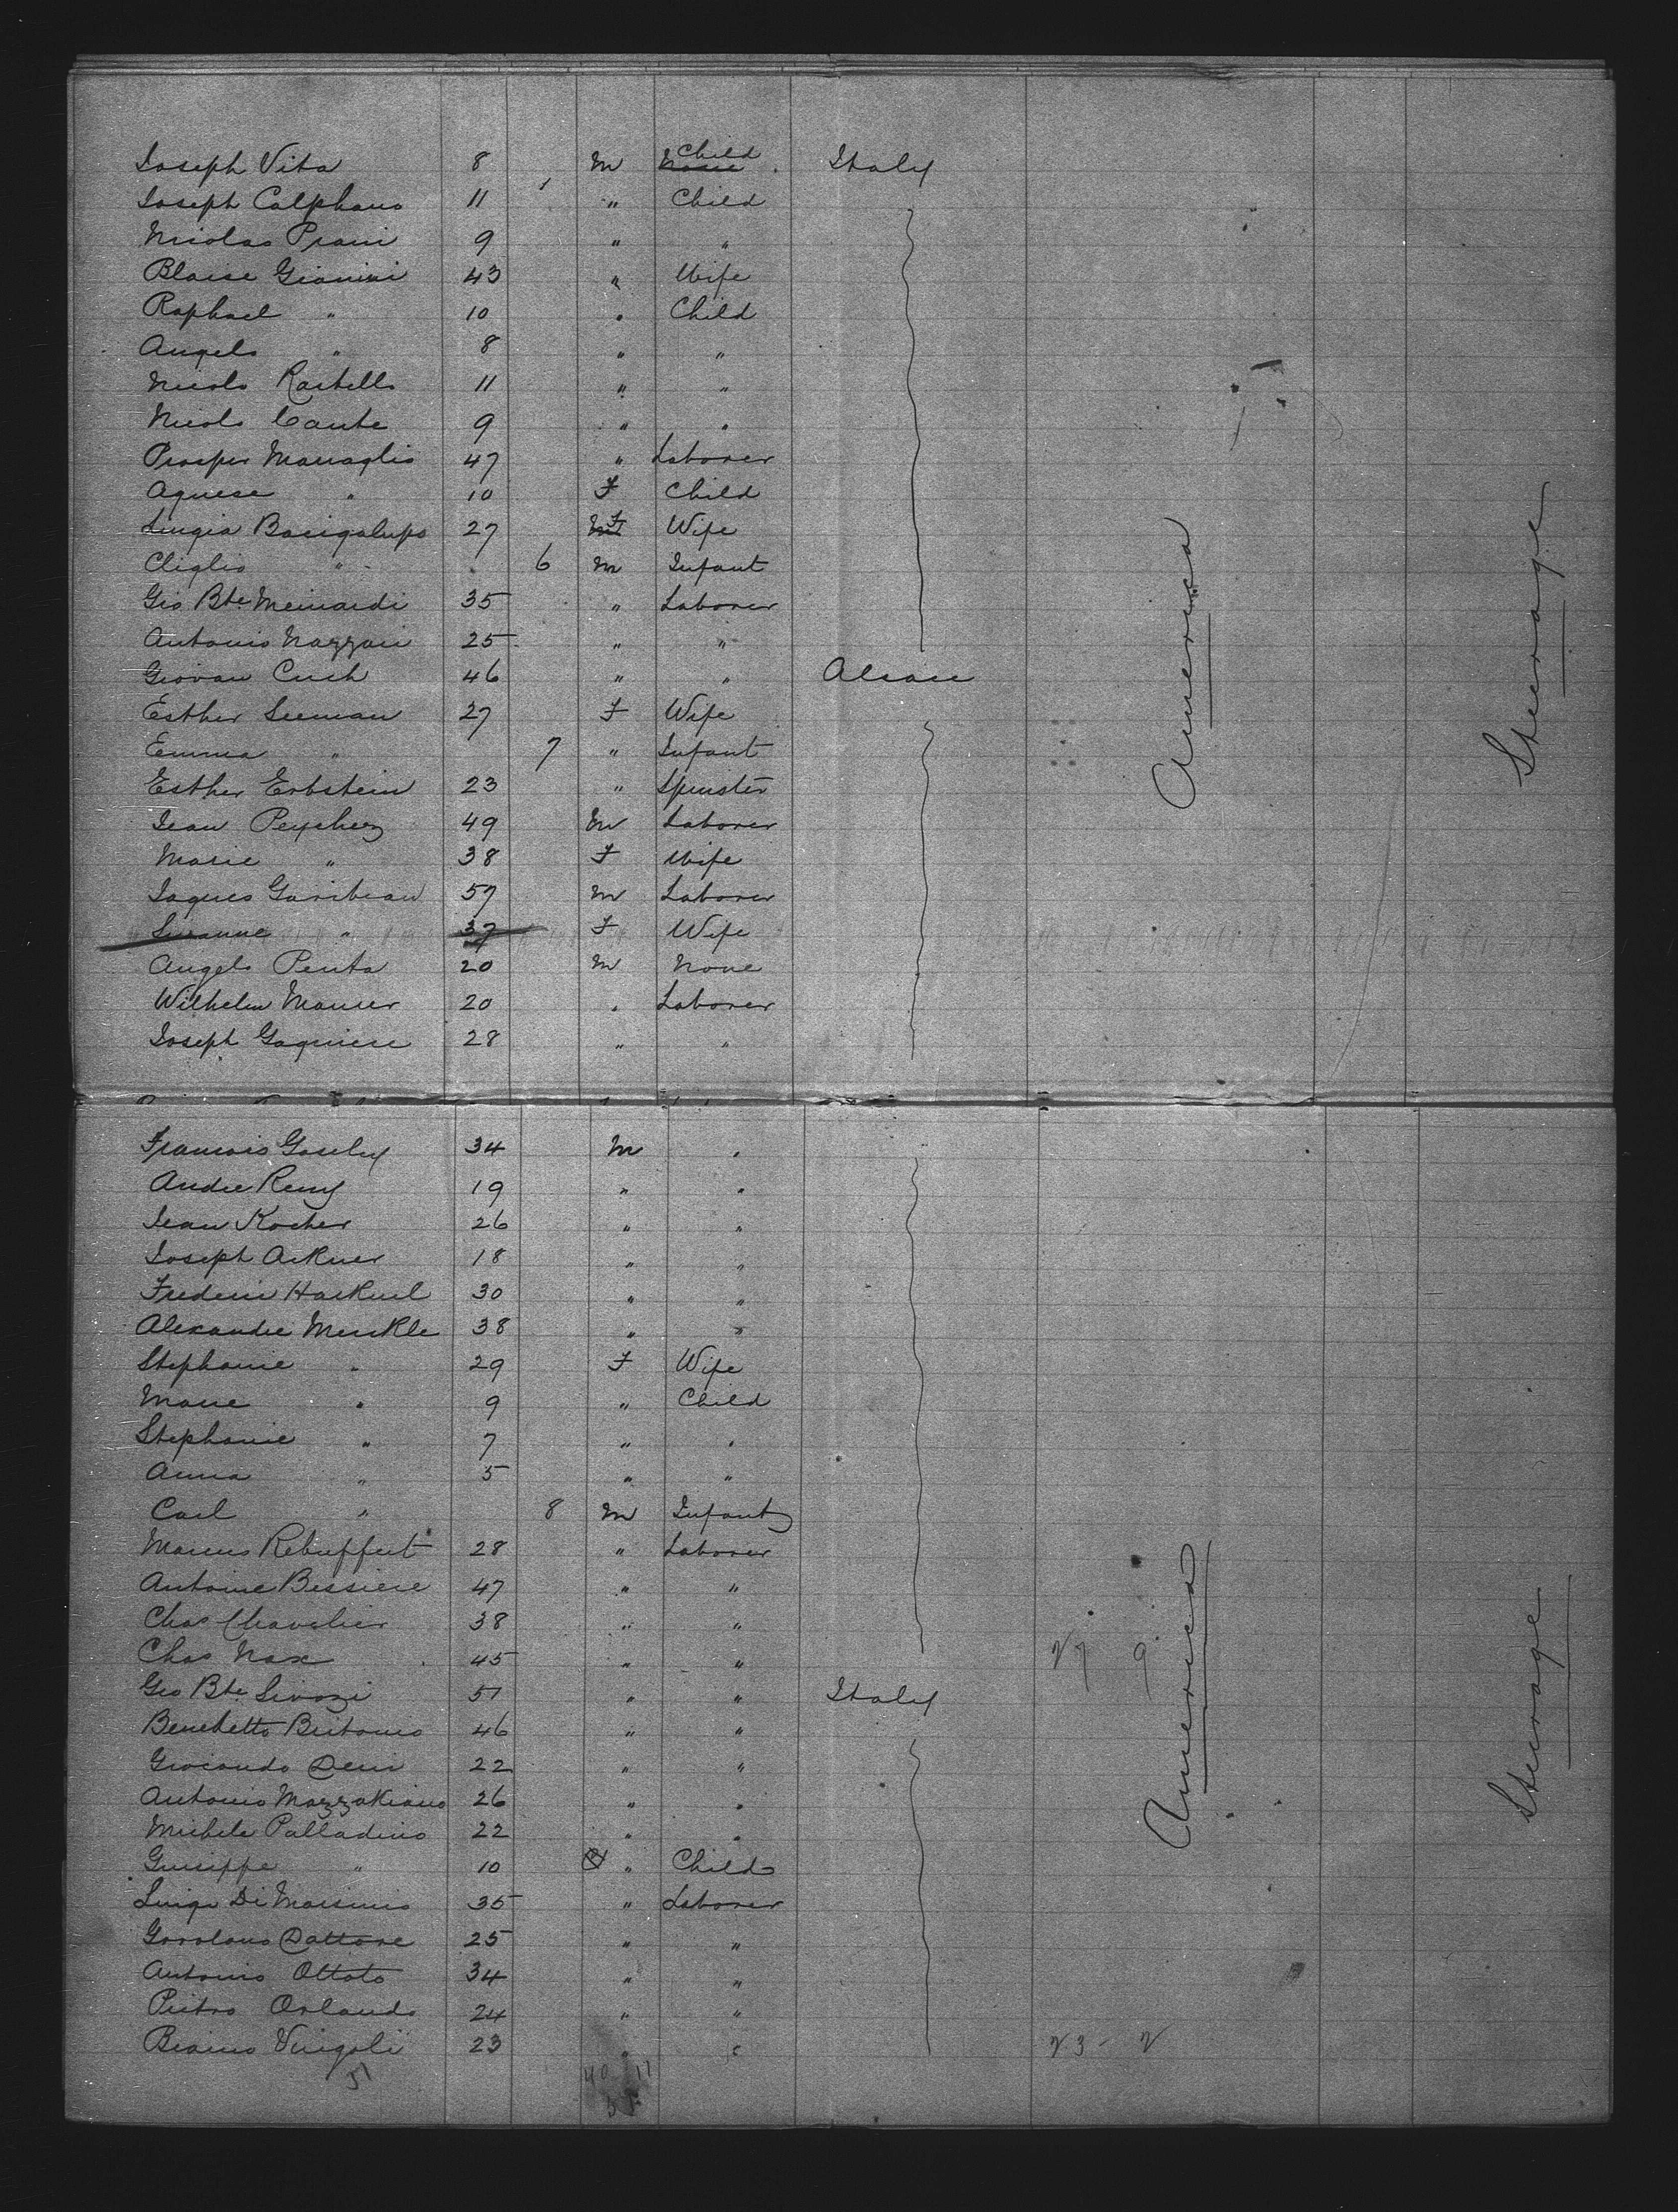 Joseph Vita 8 M ~~None~~ Child Italy
Joseph Calphano 11 " Child
Nicolas Prani 9 " "
Blaise Gianini 43 " Wife
Raphael " 10 " Child
Angelo " 8 " "
Nicolo Rastello 11 " "
Nicolo Cante 9 " "
Prosper Managlio 47 " Laborer
Agnese " 10 F Child
Luigia Bacigalupo 27 ~~M~~ F Wife
Cliglio " 6 M Infant
Gio Bte Meinardi 35 " Laborer
Antonio Nazzari 25 " "
Giovan Cuch 46 " " Alsace
Esther Seeman 27 F Wife
Emma " 7 " Infant
Esther Erbstein 23 " Spinster
Jean 49 M Laborer
Marie " 38 F Wife
Jaques Garibeau 57 M Laborer
~~Suzanne~~ " ~~37~~ F Wife
Angelo Penta 20 M None
Wilhelm Maurer 20 " Laborer
Joseph Gaquiere 28 " "
America
Steerage
Francois Gosely 34 M "
Andre Remy 19 " "
Jean Kocher 26 " "
Joseph Ackner 18 " "
Frederic 30 " "
Alexandre Merkle 38 " "
Stephanie " 29 F Wife
Marie " 9 " Child
Stephanie " 7 " "
Anna " 5 " "
Carl " 8 M Infant
Marcus Rebuffert 28 " Laborer
Antoine Bessiere 47 " "
Chas Chavelier 38 " "
Chas Nax 45 " "
Geo Bte Sivozi 51 " " Italy
Benedetto Britonio 46 " "
Giocondo Deni 22 " "
Antonio Mazzakiano 26 " "
Michele Palladino 22 " "
Guiseppe " 10 " Child
Luigi Di Massimio 35 " Laborer
Garolano Dattore 25 " "
Antonio Ottato 34 " "
Pietro Orlando 24 " "
Biaino Vingoli 23 " "
America
Steerage
51
40 11